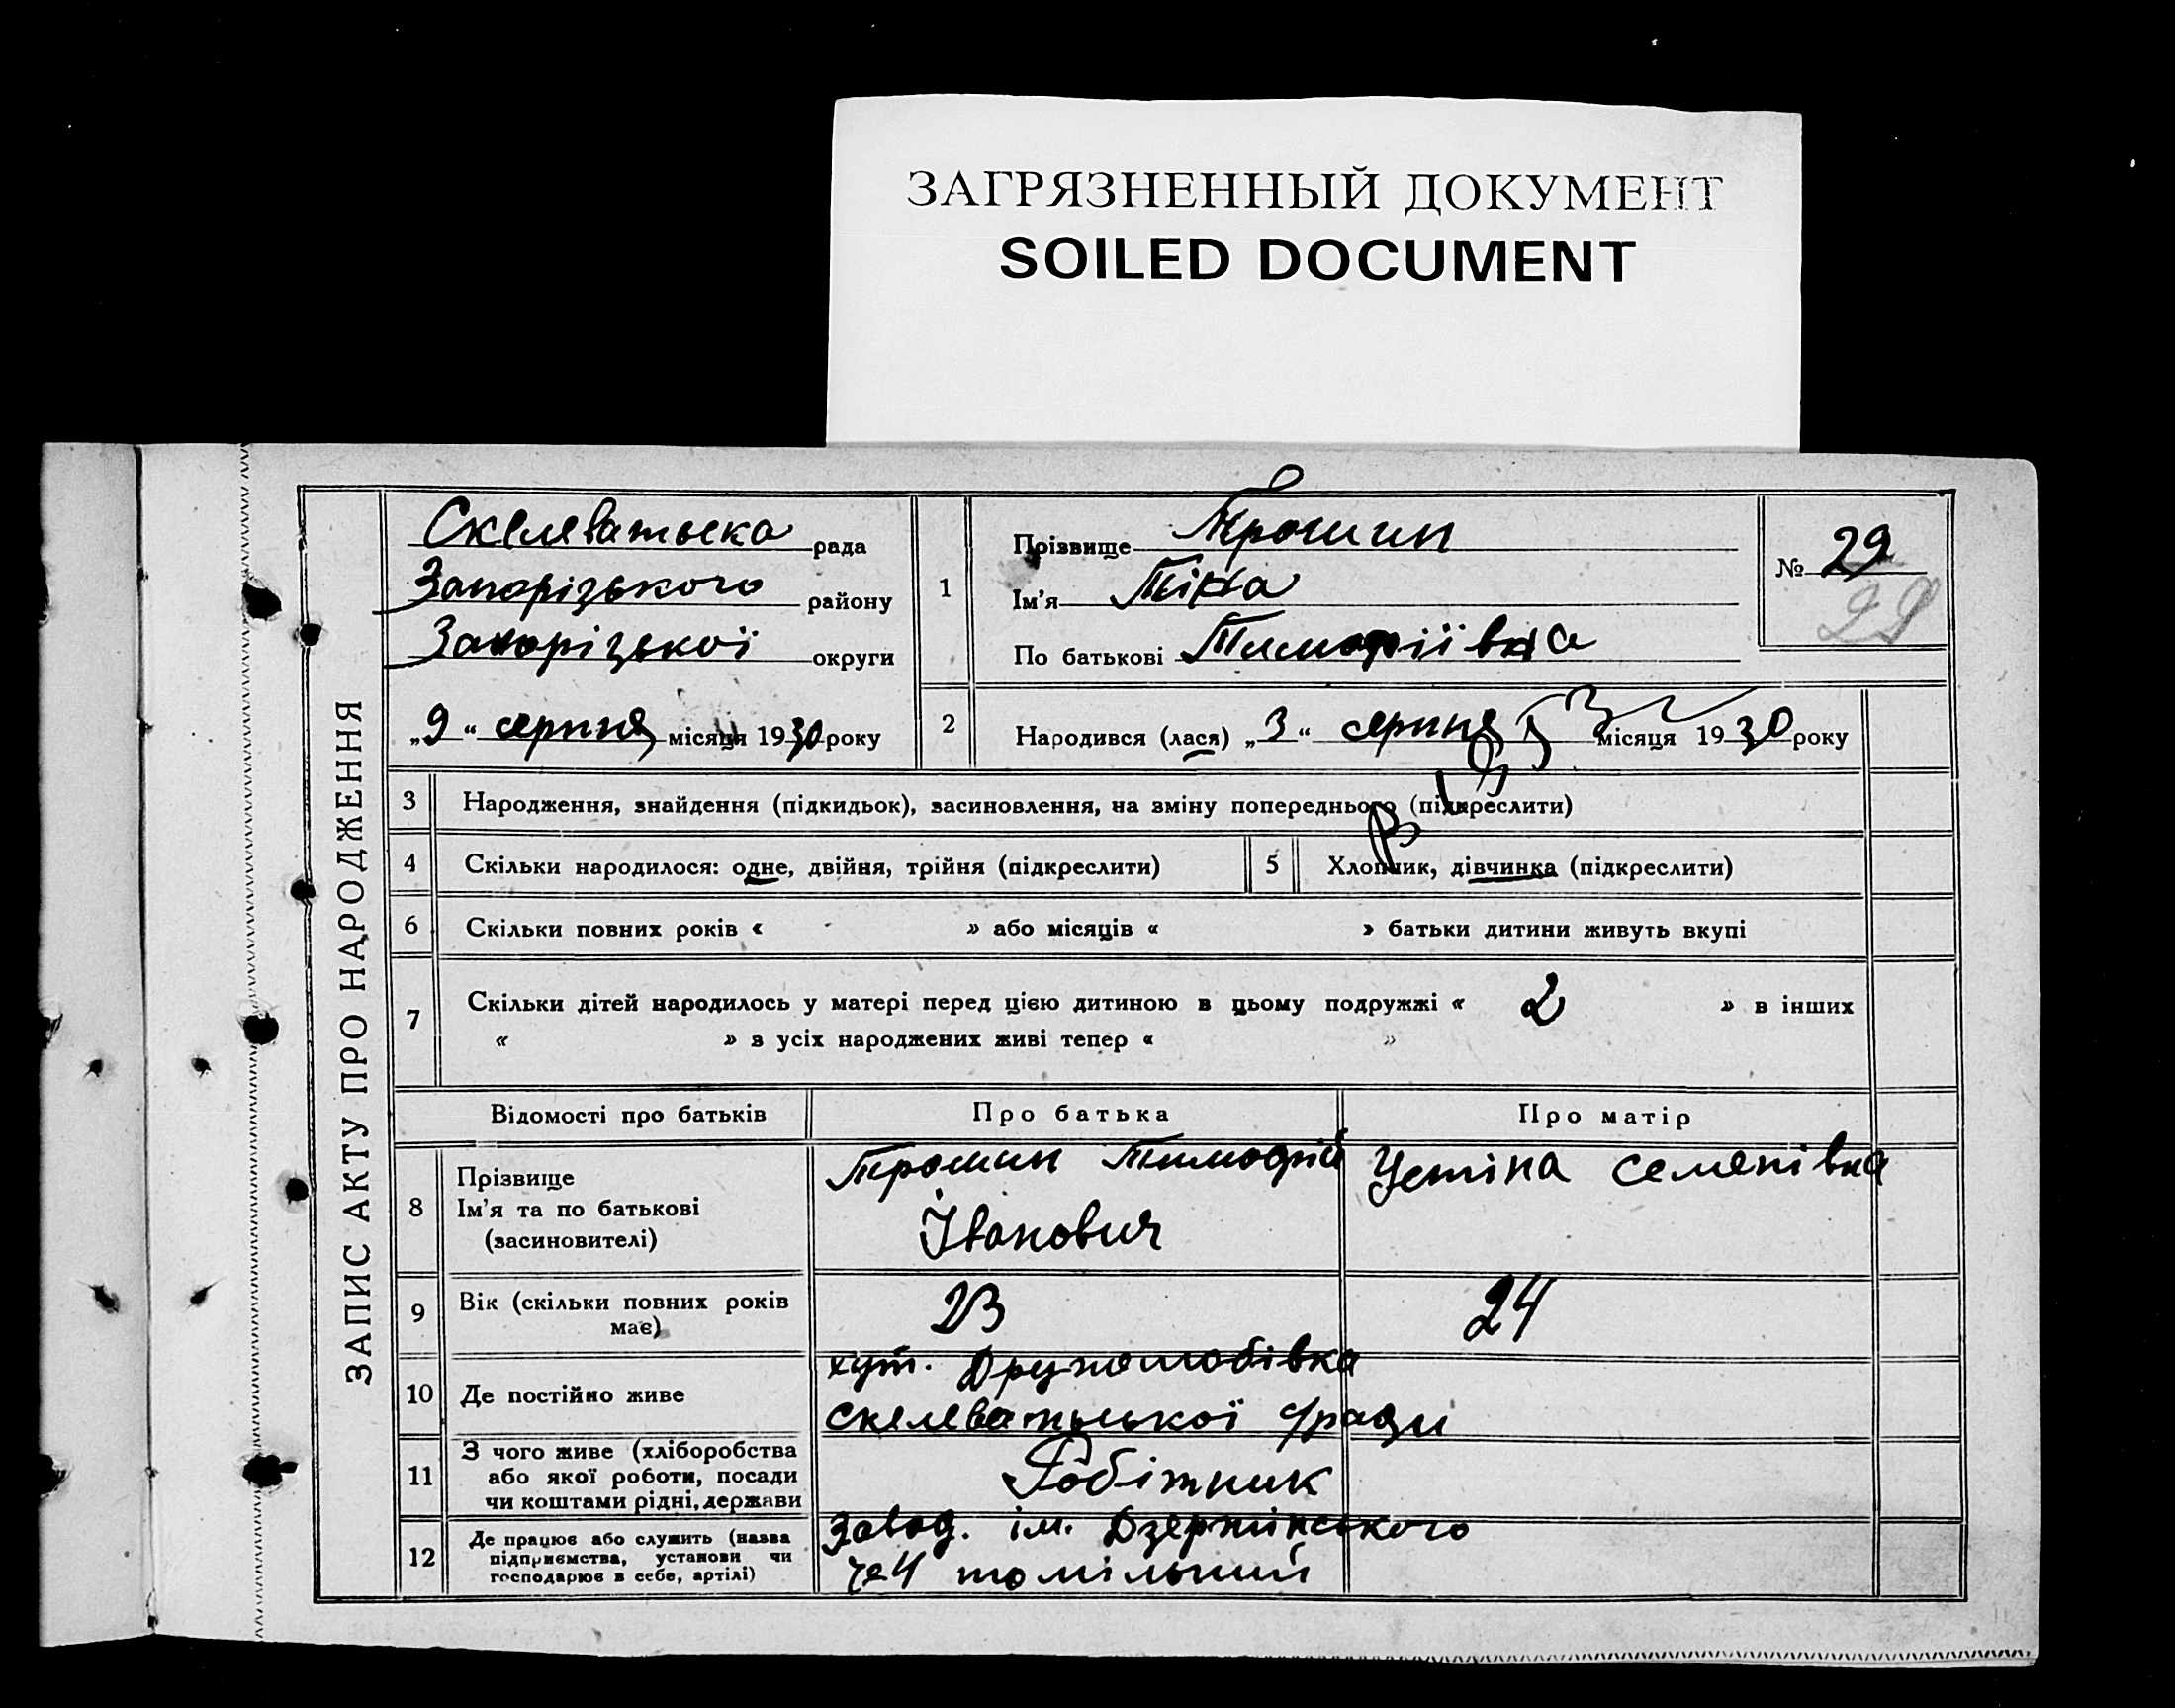 ЗАГРЯЗНЕННЫЙ ДОКУМЕНТ
SOILED DOCUMENT
ЗАПИС АКТУ ПРО НАРОДЖЕННЯ
Скелеватська рада
Запорізького району
Запорізької округи
„9“ серпня місяця 1930 року
1
Прізвище Трошин
Ім'я Тіна
По батькові Тимофіївна
№ 29
29
2
Народився (лася) „3“ серпня місяця 1930 року
3 Народження, знайдення (підкидьок), засиновлення, на зміну попереднього (підкреслити)
4 Скільки народилося: одне, двійня, трійня (підкреслити)
5 Хлопчик, дівчинка (підкреслити)
6 Скільки повних років « » або місяців « » батьки дитини живуть вкупі
7 Скільки дітей народилось у матері перед цією дитиною в цьому подружжі « 2 » в інших
« » з усіх народжених живі тепер « »
Відомості про батьків Про батька Про матір
8 Прізвище
Ім'я та по батькові
(засиновителі)
Трошин Тимофій
Іванович
Устіна Семенівна
9 Вік (скільки повних років
має)
23
24
10 Де постійно живе
хут. Дружелюбівка
Скелеватської ради
11 З чого живе (хліборобства
або якої роботи, посади
чи коштами рідні, держави
Робітник
12 Де працює або служить (назва
підприємства, установи чи
господарює в себе, артілі)
завод. ім. Дзержинського